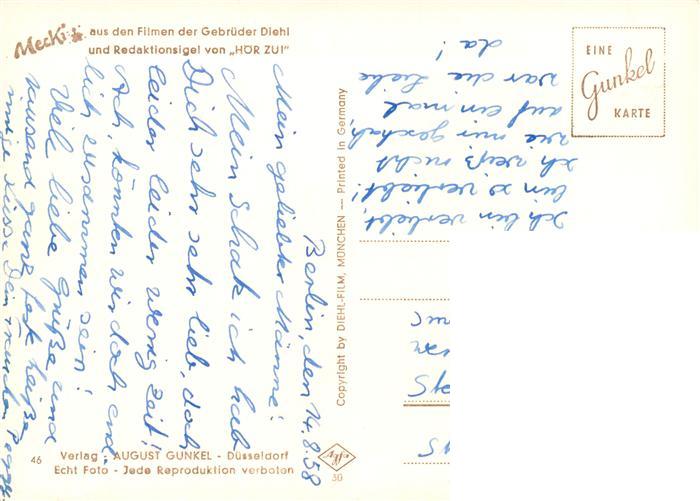 Mecki
aus den Filmen der Gebrüder Diehl
und Redaktionsigel von „HÖR ZU!"
EINE
Gunkel
KARTE
Berlin, den 14.8.58
Mein geliebter Männe!
Mein Schatz ich hab
Dich sehr sehr lieb, doch
leider leider wenig Zeit!
Ach, könnten wir doch end-
lich zusammen sein!
Viel liebe Grüße und
tausend ganz heiße
innige Küsse Dein
Ich bin verliebt,
bin so verliebt!
Ich weiß nicht
wie mir geschah,
auf einmal
war die Liebe
da!
Copyright by DIEHL-FILM, MÜNCHEN — Printed in Germany
46
Verlag - AUGUST GUNKEL - Düsseldorf
Echt Foto - Jede Reproduktion verboten
Agfa
30